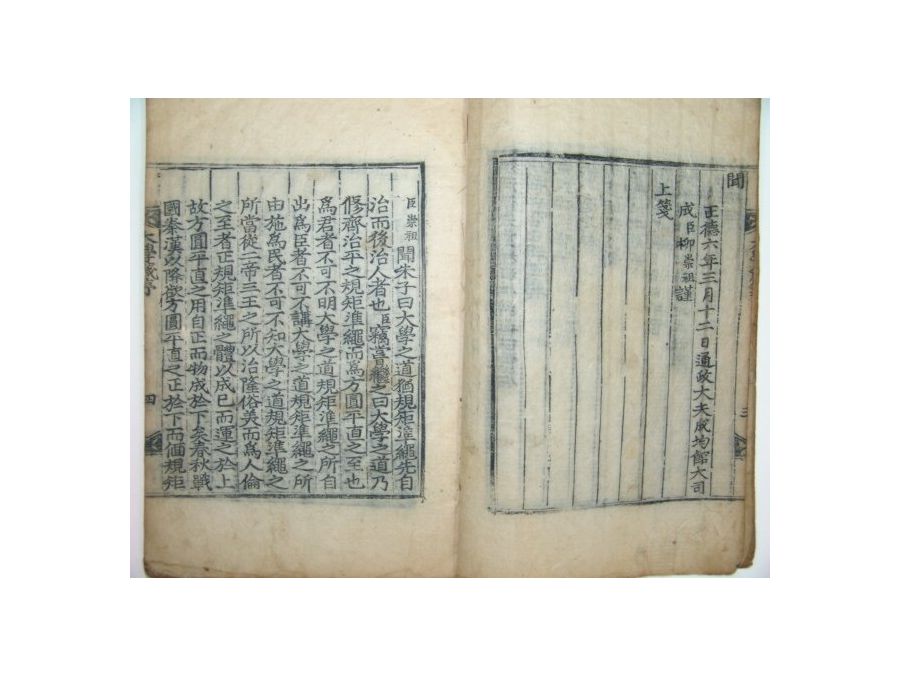 聞
正德六年三月十二日通政大夫成均館大司
成臣柳崇祖謹
上箋
三
臣崇祖聞朱子曰大學之道猶規矩準繩先自
治而後治人者也臣竊嘗繼之曰大學之道乃
修齊治平之規矩準繩而爲方圓平直之至也
爲君者不可不明大學之道規矩準繩之所自
出爲臣者不可不講大學之道規矩準繩之所
由施爲民者不可不知大學之道規矩準繩之
所當從二帝三王之所以治隆俗美而爲人倫
之至者正規矩準繩之體以成己而運之於上
故方圓平直之用自正而物成於下矣春秋戰
國秦漢以降欲方圓平直之正於下而偭規矩
四